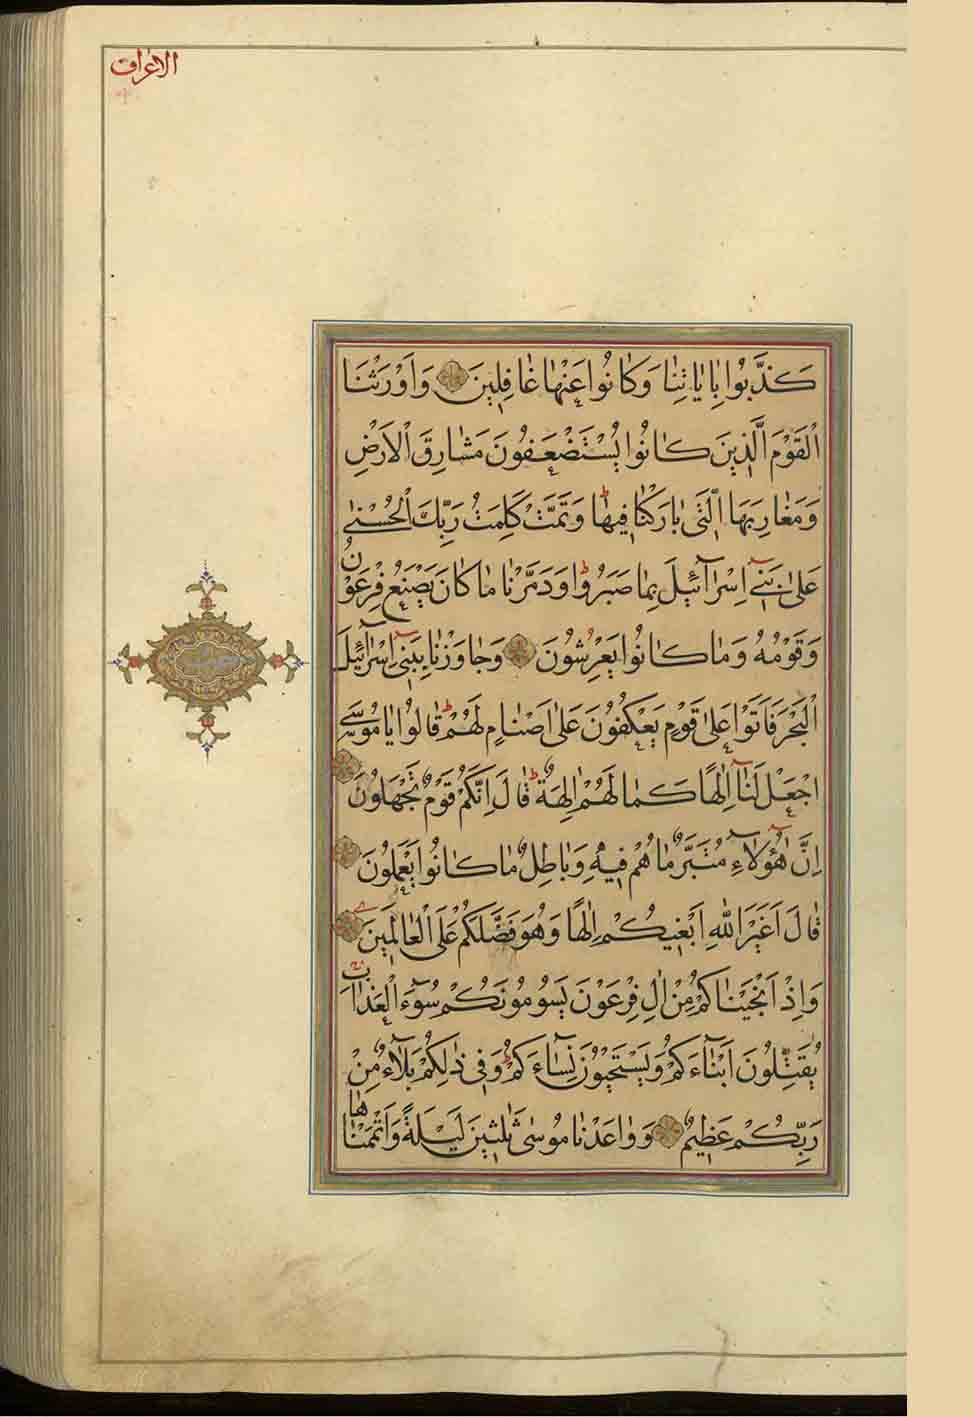 الاعراف
كَذَّبُوا بِاٰيَاتِنَا وَكَانُوا عَنْهَا غَافِلِينَ وَاَوْرَثْنَا
الْقَوْمَ الَّذِينَ كَانُوا يُسْتَضْعَفُونَ مَشَارِقَ الْاَرْضِ
وَمَغَارِبَهَا الَّتِى بَارَكْنَا فِيهَا وَتَمَّتْ كَلِمَتُ رَبِّكَ الْحُسْنٰى
عَلٰى بَنِى اِسْرَآئِيلَ بِمَا صَبَرُوا وَدَمَّرْنَا مَا كَانَ يَصْنَعُ فِرْعَوْنُ
وَقَوْمُهُ وَمَا كَانُوا يَعْرِشُونَ وَجَاوَزْنَا بِبَنِى اِسْرَآئِيلَ
الْبَحْرَ فَاَتَوْا عَلٰى قَوْمٍ يَعْكُفُونَ عَلٰى اَصْنَامٍ لَهُمْ قَالُوا يَا مُوسَى
اجْعَلْ لَنَا اِلٰهًا كَمَا لَهُمْ اٰلِهَةٌ قَالَ اِنَّكُمْ قَوْمٌ تَجْهَلُونَ
اِنَّ هٰٓؤُلَآءِ مُتَبَّرٌ مَا هُمْ فِيهِ وَبَاطِلٌ مَا كَانُوا يَعْمَلُونَ
قَالَ اَغَيْرَ اللّٰهِ اَبْغِيكُمْ اِلٰهًا وَهُوَ فَضَّلَكُمْ عَلَى الْعَالَمِينَ
وَاِذْ اَنْجَيْنَاكُمْ مِنْ اٰلِ فِرْعَوْنَ يَسُومُونَكُمْ سُوٓءَ الْعَذَابِ
يُقَتِّلُونَ اَبْنَآءَكُمْ وَيَسْتَحْيُونَ نِسَآءَكُمْ وَفِى ذٰلِكُمْ بَلَآءٌ مِنْ
رَبِّكُمْ عَظِيمٌ وَوَاعَدْنَا مُوسٰى ثَلٰثِينَ لَيْلَةً وَاَتْمَمْنَاهَا